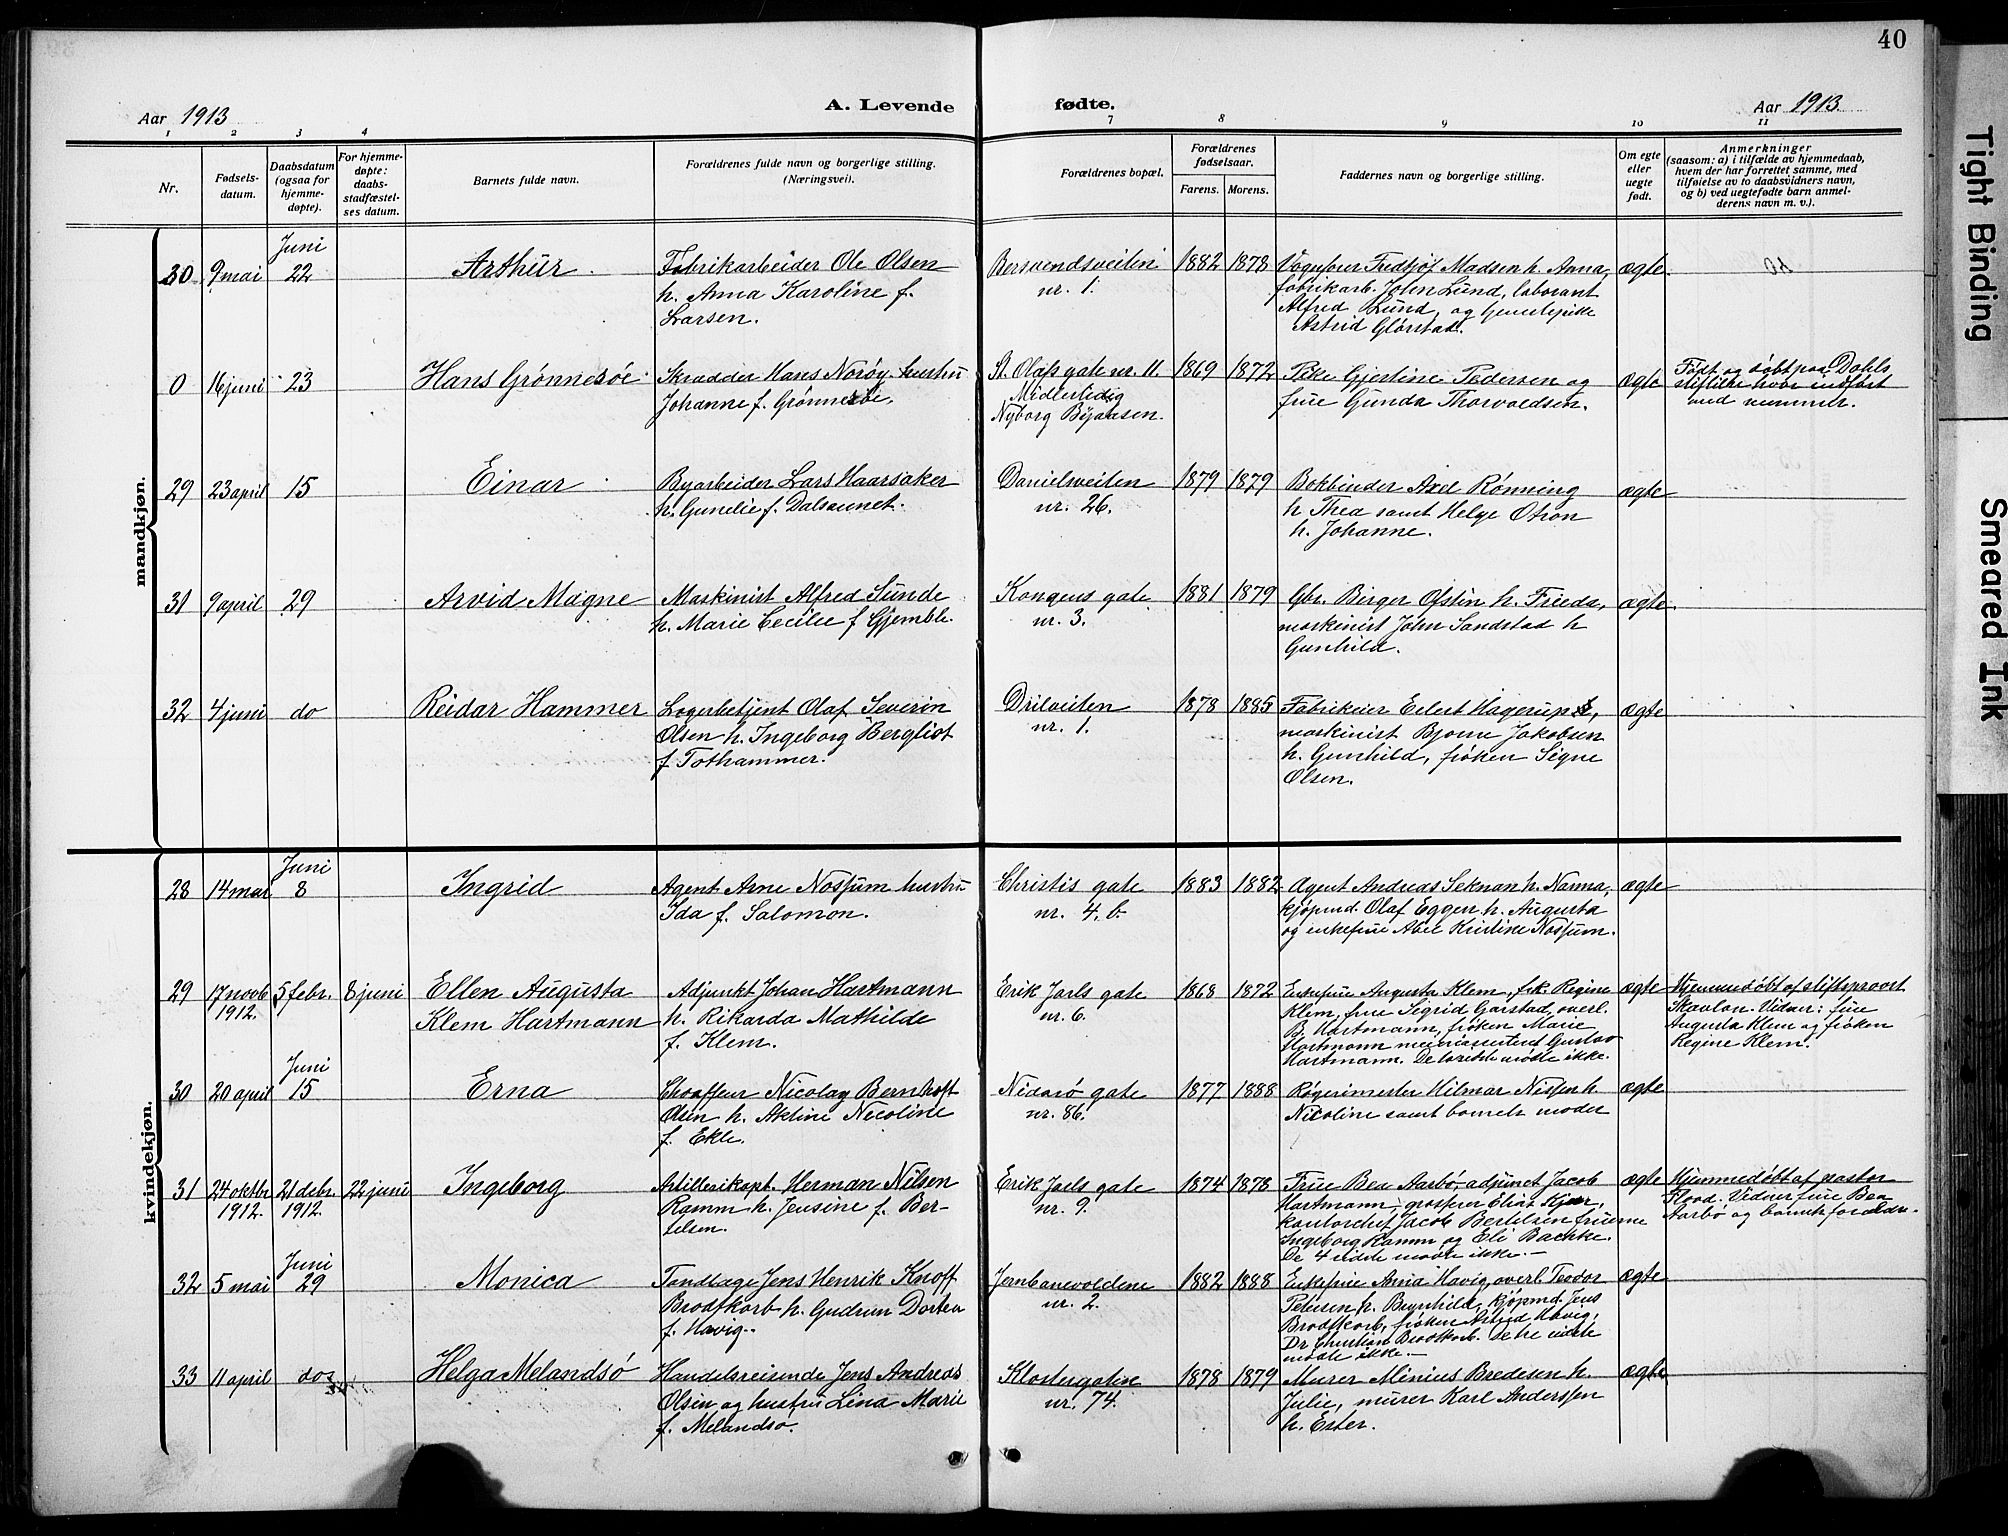 40
Aar 1913
A. Levende fødte.
Aar 1913.
1 2 3 4 7 8 9 10 11
Nr.
Fødsels-
datum.
Daabsdatum
(ogsaa for
hjemme-
døpte).
For hjemme-
døpte:
daabs-
stadfæstel-
ses datum.
Barnets fulde navn.
Forældrenes fulde navn og borgerlige stilling.
(Næringsvei).
Forældrenes bopæl.
Forældrenes
fødselsaar.
Farens. Morens.
Faddernes navn og borgerlige stilling.
Om egte
eller
uegte
født.
Anmerkninger
(saasom: a) i tilfælde av hjemmedaab,
hvem der har forrettet samme, med
tilføielse av to daabsvidners navn,
og b) ved uegtefødte barn anmel-
derens navn m. v.).
mandkjøn.
Juni
30 9 mai 22
Arthur
Fabrikarbeider Ole Olsen
h. Anna Karoline f.
Larsen.
Bersvendsveiten
nr. 1.
1882 1878
Vognfører Fredtjof Madsen h. Anna,
fabrikarb. John Lund, laborant
Alfred Lund, og
Astrid Glørstad.
ægte.
0 16 juni 23
Hans Grønnesøe
Skrædder Hans Norøy hustru
Johanne f. Grønnesøe.
St. Olafs gate nr. 11
Midlertidig
Nyborg Byaasen.
1869 1872
Pike Gjertine Pedersen og
frue Gunda Thorvaldsen.
ægte
Født og døbt paa Dahls
stiftelse hvor indført
med nummer.
29 23 april 15
Einar
Byarbeider Lars Haarsaker
h. Gunelie f. Dalsaunet.
Danielsveiten
nr. 26.
1879 1879
Bokbinder Axel Rønning
h. Thea samt Helge Otron
h. Johanne.
ægte
31 9 april 29
Arvid Magne
Maskinist Alfred Sunde
h. Marie Cecilie f. Gjemble.
Kongens gate
nr. 3.
1881 1879
Gbr. Birger Ofstin h. Frieda,
maskinist John Sandstad h
Gunhild.
ægte.
32 4 juni do
Reidar Hammer
Lagerbetjent Olaf Severin
Olsen h. Ingeborg Bergliot
f. Tothammer.
Drilveiten
nr. 1.
1878 1885
Fabrikeier Eilert Hagerup,
maskinist Bjarne Jakobsen
h. Gunhild, frøken Signe
Olsen.
ægte
kvindekjøn.
Juni
28 14 mar 8
Ingrid
Agent Arne Nossum hustru
Ida f. Salomon.
Christis gate
nr. 4. b.
1883 1882
Agent Andreas Seknan h. Nanna,
kjøpmd. Olaf Eggen h. Augusta
og enkefrue Abel Kristine Nossum.
ægte
29 17 novb 5 febr. 8 juni
1912.
Ellen Augusta
Klem Hartmann
Adjunkt Johan Hartmann
h. Rikarda Mathilde
f. Klem.
Erik Jarls gate
nr. 6.
1868 1872
Enkefrue Augusta Klem, frk. Regine
Klem, frue Sigrid Garstad, overl.
B. Hartmann, frøken Marie
Hartmann Gustav
Hartmann. De to sidste møtte ikke.
ægte
Hjemmedøbt af stiftsprovst
Skavlan. Vidner: frue
Augusta Klem og frøken
Regine Klem.
Juni
30 20 april 15
Erna
Chauffeur Nicolay Bernhoft
Olsen h. Aktine Nicoline
f. Ekle.
Nidarø gate
nr. 86.
1877 1888
Røgerimester Hilmar Nissen h
Nicoline samt barnets moder
ægte
31 24 oktbr 21 debr. 22 juni
1912. 1912.
Ingeborg
Artillerikapt. Herman Nilsen
Ramm h. Jensine f. Ber-
telsen.
Erik Jarls gate
nr. 9.
1874 1878
Frue Bea Aarbø, adjunct Jacob
Hartmann, grosserer Elias Kjær,
kontorchef Jacob Bertelsen fruerne
Ingeborg Ramm og Eli Bachke.
De 4 sidste møtte ikke.
ægte
Hjemmedøbt af pastor
Flood. Vidner frue Bea
Aarbø og barnets forældre.
Juni
32 5 mai 29
Monica
Tandlæge Jens Henrik Knoff
Brodtkorb h. Gudrun Dortea
f. Havig.
Jernbanevoldene
nr. 2.
1882 1888
Enkefrue Anna Havig, overl. Teodor
Petersen h. Brynhild, kjøpmd. Jens
Brodtkorb, frøken Astrid Havig,
Dr. Christian Brodtkorb. De tre sidste
møtte ikke.
ægte
33 11 april do
Helga Melandsø
Handelsreisende Jens Andreas
Olsen og hustru Lina Marie
f. Melandsø.
Klostergaten
nr. 74.
1878 1879
Murer Minius Bredesen h.
Julie, murer Karl Anderssen
h. Ester.
ægte
Tight Binding
Smeared Ink